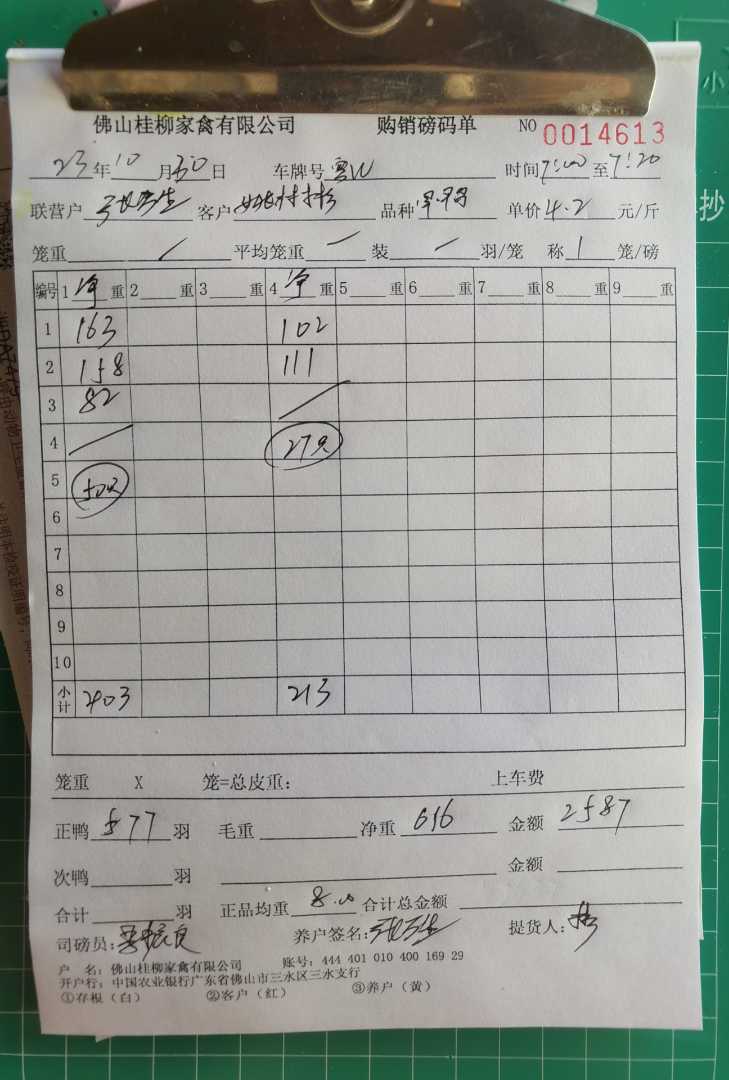 佛山桂柳家禽有限公司 购销磅码单 NO 0014613
23年10月30日 车牌号 时间7:00至7:20
联营户 客户 品种 单价4.2元/斤
笼重/平均笼重/装/羽/笼 称1笼/磅
编号 1净重 2重 3重 4净重 5重 6重 7重 8重 9重
1 163 102
2 158 111
3 82 /
4 / 27只
5 50只
6
7
8
9
10
小计 403 213
笼重 X 笼=总皮重: 上车费
正鸭 77羽 毛重 净重616 金额2587
次鸭羽 金额
合计羽 正品均重8.00合计总金额
司磅员: 养户签名: 提货人:
户 名: 佛山桂柳家禽有限公司 账号: 444 401 010 400 169 29
开户行: 中国农业银行广东省佛山市三水区三水支行
①存根(白) ②客户(红) ③养户(黄)
小
抄